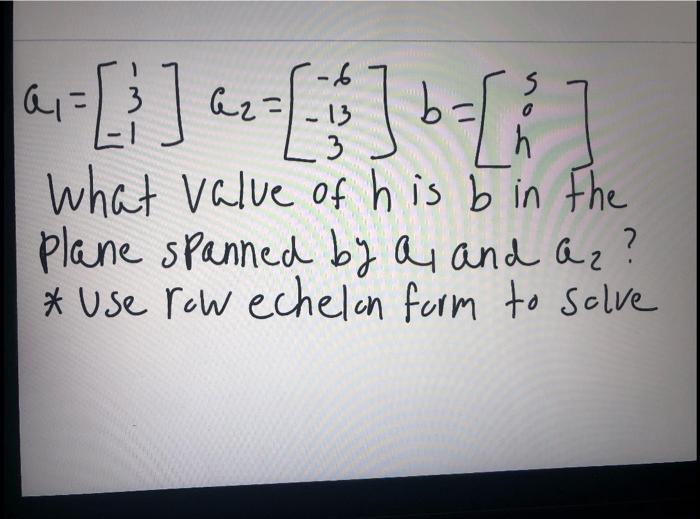 a1 = [1 3 -1] a2 = [-6 -13 3] b = [5 0 h]
What value of h is b in the
plane spanned by a1 and a2 ?
* Use row echelon form to solve